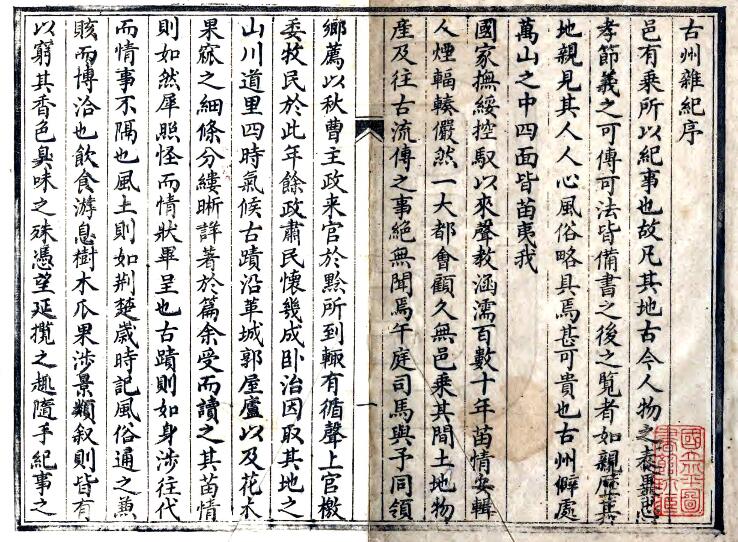 古州雜紀序
邑有乘所以紀事也故凡其地古今人物之
孝節義之可傳可法皆備書之後之覧者如親歷其
地親見其人人心風俗略具焉甚可貴也古州僻處
萬山之中四面皆苗夷我
國家撫綏控馭以來聲教涵濡百數十年苗情安輯
人煙輻輳儼然一大都會顧久無邑乘其間土地物
產及往古流傳之事絕無聞焉午庭司馬與予同領
一
鄉薦以秋曹主政来官於黔所到輒有循聲上官檄
委牧民於此年餘政肅民懷幾成卧治因取其地之
山川道里四時氣候古蹟沿革城郭屋廬以及花木
果蓏之細條分縷晰詳著於篇余受而讀之其苗情
則如然犀照怪而情狀畢呈也古蹟則如身涉往代
而情事不隔也風土則如荆楚歲時記風俗通之兼
賅而博洽也飲食游息樹木瓜果涉景類叙則皆有
以窮其香色臭味之殊憑望延攬之趣隨手紀事之